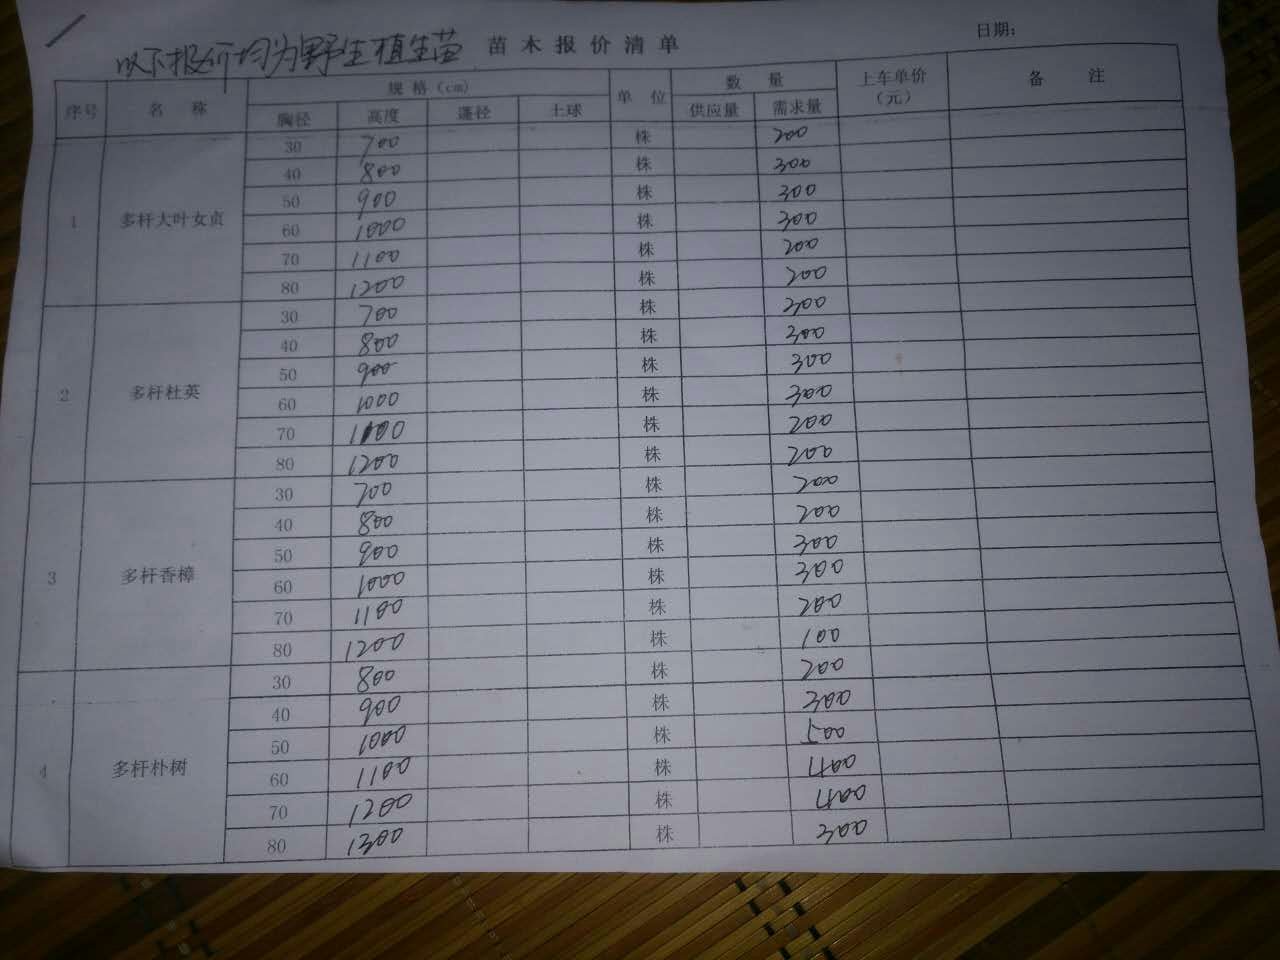 以下报价均为野生植生苗 苗木报价清单 日期:
序号 名称 规格(cm) 单位 数量 上车单价(元) 备注
胸径 高度 蓬径 土球 供应量 需求量
1 多杆大叶女贞 30 700 株 200
40 800 株 300
50 900 株 300
60 1000 株 300
70 1100 株 200
80 1200 株 200
2 多杆杜英 30 700 株 300
40 800 株 300
50 900 株 300
60 1000 株 300
70 1100 株 200
80 1200 株 200
3 多杆香樟 30 700 株 200
40 800 株 200
50 900 株 300
60 1000 株 300
70 1100 株 200
80 1200 株 100
4 多杆朴树 30 800 株 200
40 900 株 300
50 1000 株 500
60 1100 株 400
70 1200 株 400
80 1300 株 300